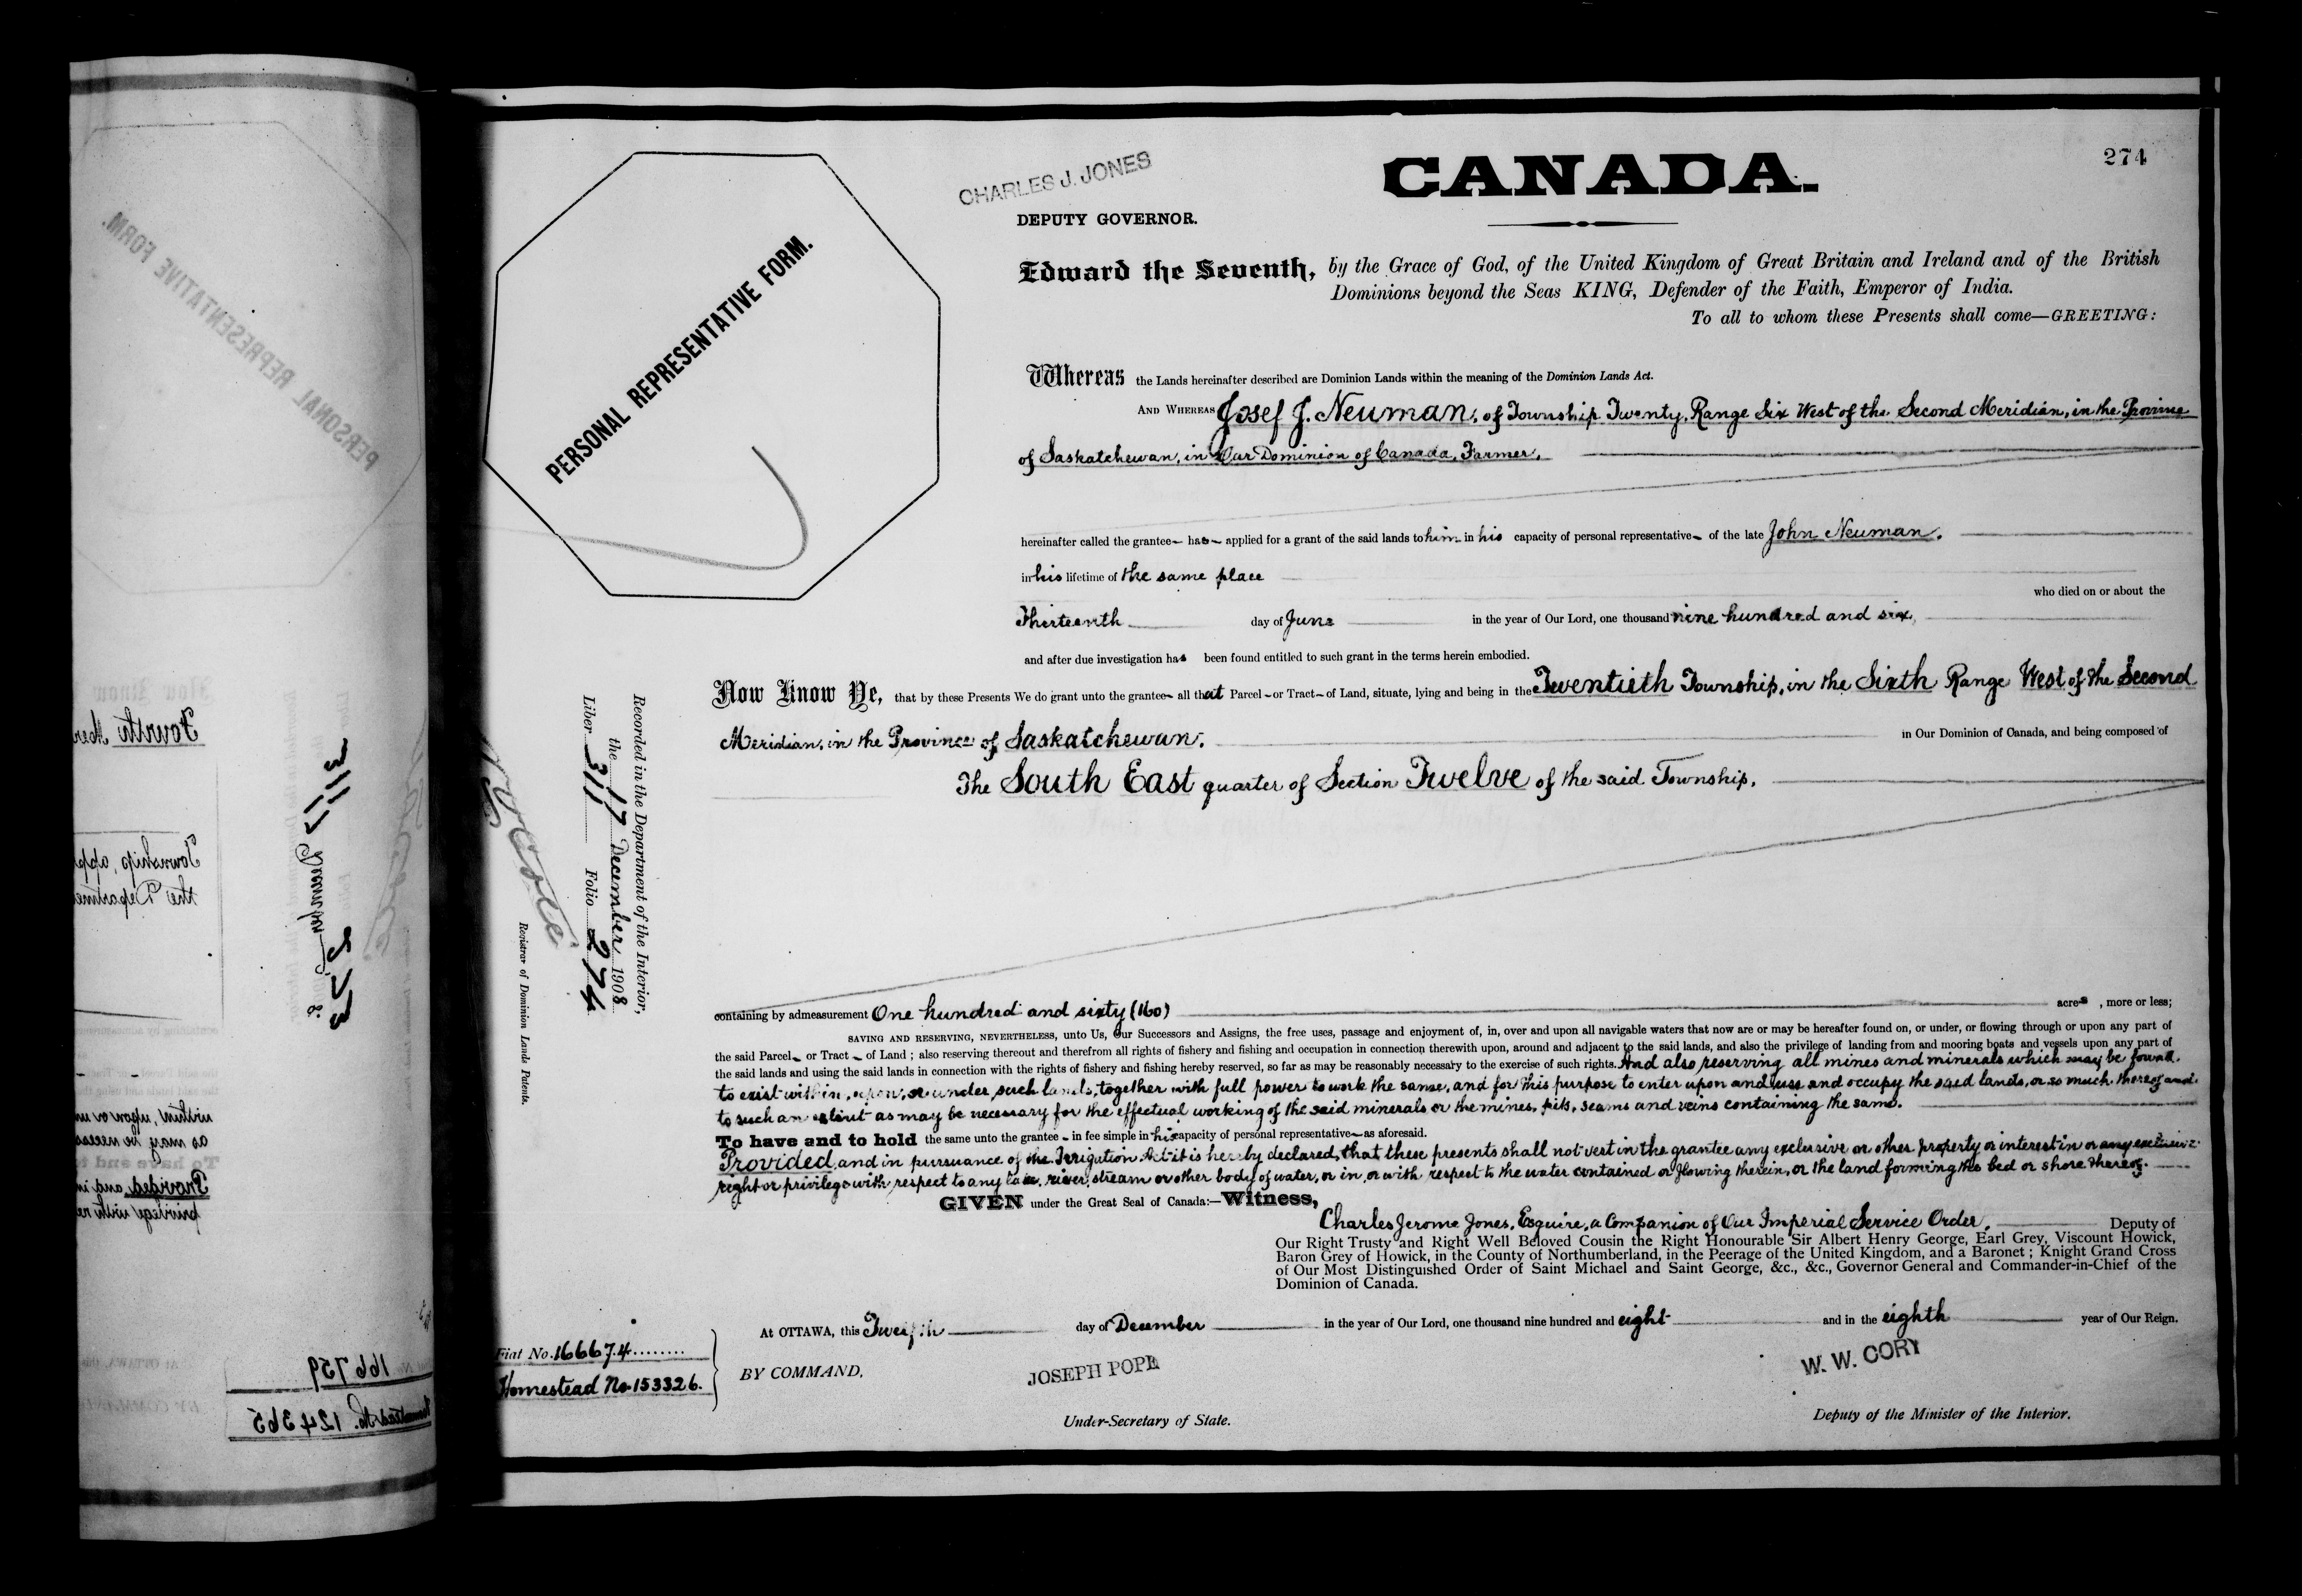 274
CHARLES J. JONES
CANADA.
DEPUTY GOVERNOR.
PERSONAL REPRESENTATIVE FORM.
Edward the Seventh, by the Grace of God, of the United Kingdom of Great Britain and Ireland and of the British
Dominions beyond the Seas KING, Defender of the Faith, Emperor of India.
To all to whom these Presents shall come—GREETING:
Whereas the Lands hereinafter described are Dominion Lands within the meaning of the Dominion Lands Act.
AND WHEREAS Josef J. Neuman, of Township Twenty, Range Six West of the Second Meridian, in the Province
of Saskatchewan, in Our Dominion of Canada, Farmer,
hereinafter called the grantee has applied for a grant of the said lands to him in his capacity of personal representative of the late John Neuman,
in his lifetime of the same place
who died on or about the
Thirteenth day of June in the year of Our Lord, one thousand nine hundred and six,
and after due investigation has been found entitled to such grant in the terms herein embodied.
Now Know Ye, that by these Presents We do grant unto the grantee all that Parcel or Tract of Land, situate, lying and being in the Twentieth Township, in the Sixth Range West of the Second
Meridian, in the Province of Saskatchewan, in Our Dominion of Canada, and being composed of
The South East quarter of Section Twelve of the said Township,
Recorded in the Department of the Interior,
the 17 December 1908
Liber 311 Folio 274
Registrar of Dominion Lands Patents.
containing by admeasurement One hundred and sixty (160) acres, more or less;
SAVING AND RESERVING, NEVERTHELESS, unto Us, Our Successors and Assigns, the free uses, passage and enjoyment of, in, over and upon all navigable waters that now are or may be hereafter found on, or under, or flowing through or upon any part of
the said Parcel or Tract of Land; also reserving thereout and therefrom all rights of fishery and fishing and occupation in connection therewith upon, around and adjacent to the said lands, and also the privilege of landing from and mooring boats and vessels upon any part of
the said lands and using the said lands in connection with the rights of fishery and fishing hereby reserved, so far as may be reasonably necessary to the exercise of such rights. And also reserving all mines and minerals which may be found
to exist within, upon, or under such lands, together with full power to work the same, and for this purpose to enter upon and use and occupy the said lands, or so much thereof and
to such an extent as may be necessary for the effectual working of the said minerals or the mines, pits, seams and veins containing the same.
To have and to hold the same unto the grantee in fee simple in his capacity of personal representative as aforesaid.
Provided, and in pursuance of the Irrigation Act it is hereby declared, that these presents shall not vest in the grantee any exclusive or other property or interest in or any exclusive
right or privilege with respect to any lake, river, stream or other body of water, or in, or with respect to the water contained or flowing therein, or the land forming the bed or shore thereof.
GIVEN under the Great Seal of Canada:—Witness,
Charles Jerome Jones, Esquire, a Companion of Our Imperial Service Order, Deputy of
Our Right Trusty and Right Well Beloved Cousin the Right Honourable Sir Albert Henry George, Earl Grey, Viscount Howick,
Baron Grey of Howick, in the County of Northumberland, in the Peerage of the United Kingdom, and a Baronet; Knight Grand Cross
of Our Most Distinguished Order of Saint Michael and Saint George, &c., &c., Governor General and Commander-in-Chief of the
Dominion of Canada.
At OTTAWA, this Twelfth day of December in the year of Our Lord, one thousand nine hundred and eight and in the eighth year of Our Reign.
Fiat No. 166674
Homestead No. 153326.
BY COMMAND,
JOSEPH POPE
Under-Secretary of State.
W. W. CORY
Deputy of the Minister of the Interior.